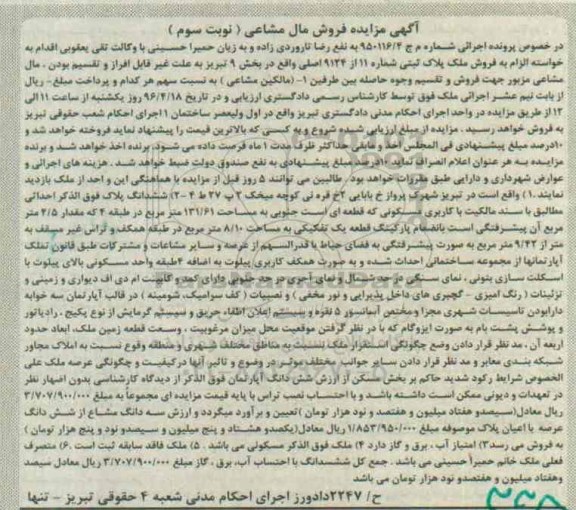 آگهی مزایده فروش مال مشاعی ( نوبت سوم )
در خصوص پرونده اجرائی شماره م ج ۹۵۰۱۱۶/۴ به نفع رضا تاروردی زاده و به زیان حمیرا حسینی با وکالت تقی یعقوبی اقدام به
خواسته الزام به فروش ملک پلاک ثبتی شماره ۱۱ از ۹۱۳۴ اصلی واقع در بخش ۹ تبریز به علت غیر قابل افراز و تقسیم بودن ، مال
مشاعی مزبور جهت فروش و تقسیم وجوه حاصله بین طرفین ۱- (مالکین مشاعی ) به نسبت سهم هر کدام و پرداخت مبلغ- ریال
از بابت نیم عشر اجرائی ملک فوق توسط کارشناس رسمی دادگستری ارزیابی و در تاریخ ۹۶/۴/۱۸ روز یکشنبه از ساعت ۱۱ الی
۱۲ از طریق مزایده در واحد اجرای احکام مدنی دادگستری تبریز واقع در اول ولیعصر ساختمان ۱ اجرای احکام شعب حقوقی تبریز
به فروش خواهد رسید . مزایده از مبلغ ارزیابی شده شروع و به کسی که بالاترین قیمت را پیشنهاد نماید فروخته خواهد شد و
۱۰درصد مبلغ پیشنهادی فی المجلس اخذ و مابقی حداکثر ظرف مدت ۱ ماه فرصت داده می شود. برنده اخذ خواهد شد و برنده
مزایده به هر عنوان اعلام انصراف نماید ۱۰درصد مبلغ پیشنهادی به نفع صندوق دولت ضبط خواهد شد . هزینه های اجرائی و
عوارض شهرداری و دارایی طبق مقررات خواهد بود. طالبین می توانند ۵ روز قبل از مزایده با هماهنگی این و احد از ملک بازدید
نمایند .۱) واقع است در تبریز شهرک پرواز خ بابایی ۲خ قره نی کوچه میخک ۲پ ۲۷ ط ۴ -۲) ششدانگ پلاک فوق الذکر احداثی
مطالبق با سند مالکیت با کاربری مسکونی که قطعه ای است جنوبی به مساحت ۱۳۱/۶۱ متر مربع در طبقه ۴ که مقدار ۲/۵ متر
مربع آن پیشرفتگی است بانضمام پارکینگ قطعه یک تفکیکی به مساحت ۸/۱۰ متر مربع در طبقه همکف و تراس غیر مسقف به
متر از ۹/۴۲ متر مربع به صورت پیشرفتگی به فضای حیاط با قدرالسهم از عرصه و سایر مشاعات و مشترکات طبق قانون تملک
آپارتمانها از مجموعه ساختمانی احداث شده و به صورت همکف کاربری پیلوت به اضافه ۴طبقه واحد مسکونی بالای پیلوت با
اسکلت سازی بتونی ، نمای سنگی در حد شمال و نمای آجری در حد جنوبی دارای کمد و کابینت ام دی اف دیواری و زمینی و
تزئینات ( رنگ آمیزی – گچبری های داخل پذیرایی و نور مخفی ) و نصبیات ( کف سرامیک، شومینه ) در قالب آپارتمان سه خوابه
دارابودن تاسیسات شهری مجزا ومختص آسانسور ۵ نفره و سیستم اعلان اطفاء حریق و سیستم گرمایش از نوع پکیج ، رادیاتور
و پوشش پشت بام به صورت ایزوگام که با در نظر گرفتن موقعیت محل میزان مرغوبیت ، وسعت قطعه زمین ملک، ابعاد حدود
اربعه آن ، مد نظر قرار دادن وضع چگونگی استقرار ملک نسبت به مناطق مختلف شهری و منطقه وقوع نسبت به املاک مجاور
شبکه بندی معابر و مد نظر قرار دادن سایر جوانب مختلف موثر در موضوع و تاثیر آنها در کیفیت و چگونگی عرصه ملک علی
الخصوص شرایط رکود شدید حاکم بر بخش مسکن از ارزش شش دانگ آپارتمان فوق الذکر از دیدگاه کارشناسی بدون اضهار نظر
در تعهدات و دیونی ممکن است داشته باشد و با احتساب نصب تراس با پایه قیمت مزایده ای مجموعاً به مبلغ ۳/۷۰۷/۹۰۰/۰۰۰
ریال معادل(سیصدو هفتاد میلیون و هفتصد و نود هزار تومان ) تعیین و برآورد میگردد و ارزش سه دانگ مشاع از شش دانگ
عرصه با اعیان پلاک موصوفه مبلغ ۱/۸۵۳/۹۵۰/۰۰۰ ریال معادل(یکصدو هشتاد و پنج میلیون و سیصدو نود و پنج هزار تومان )
به فروش می رسد۳) امتیاز آب ، برق و گاز دارد ۴) ملک فوق الذکر مسکونی می باشد . ۵) ملک فاقد سابقه ثبت است .۶) متصرف
فعلی ملک خانم حمیرا حسینی می باشد . جمع کل ششسدانگ با احتساب آب، برق ، گاز مبلغ ۳/۷۰۷/۹۰۰/۰۰۰ ریال معادل سیصد
وهفتاد میلیون و هفتصدو نود هزار تومان می باشد
ح/ ۲۲۴۷دادورز اجرای احکام مدنی شعبه ۴ حقوقی تبریز – تنها